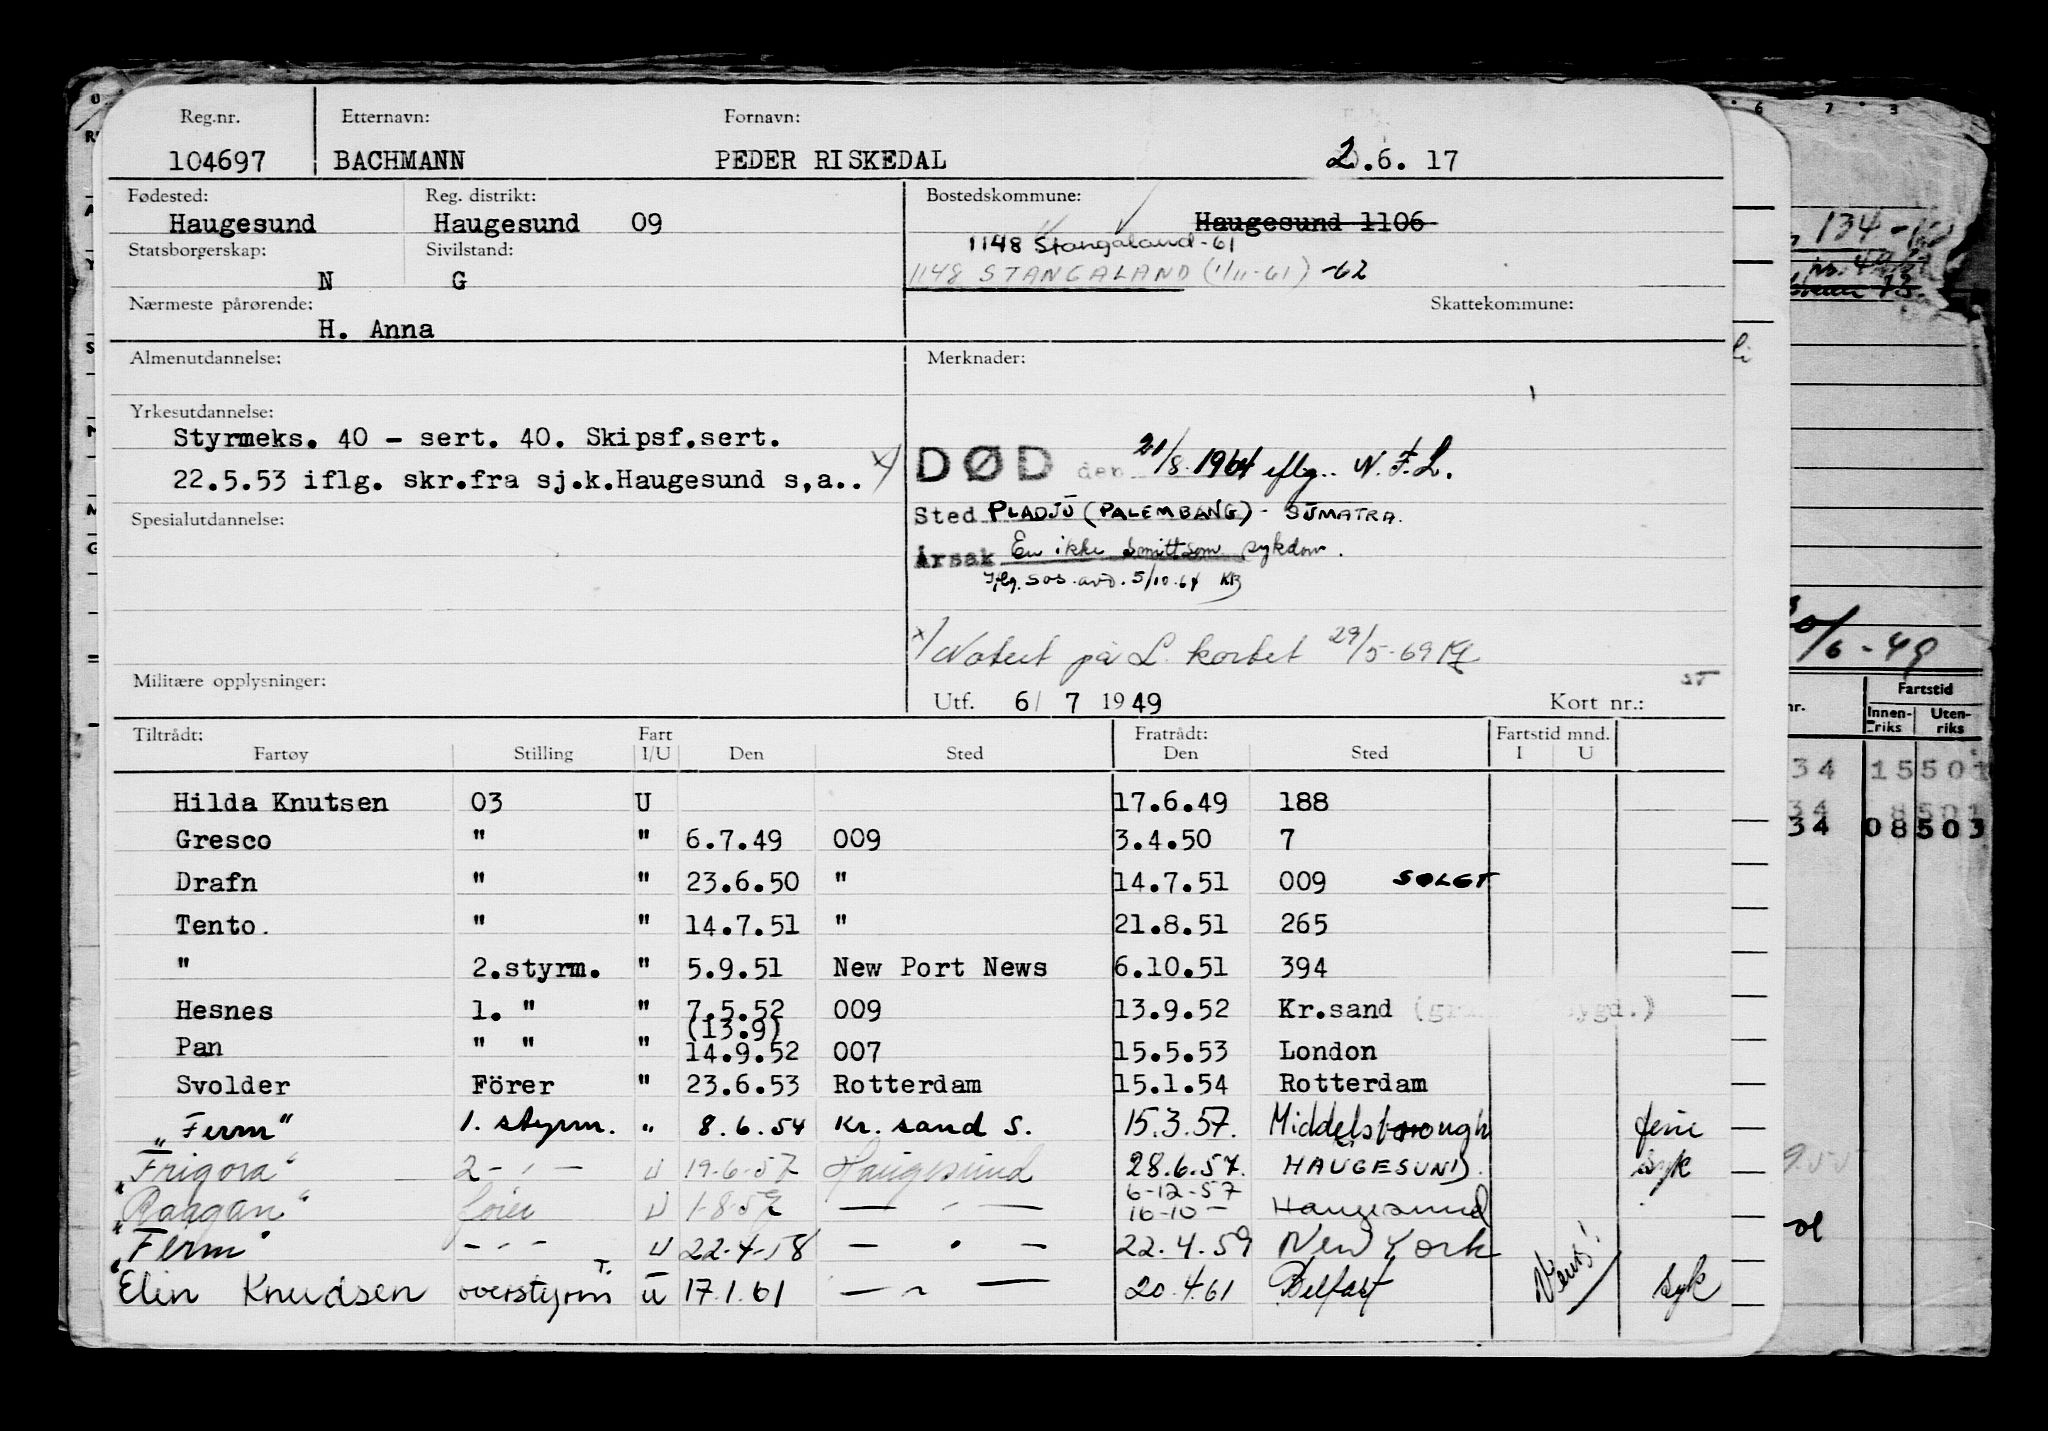 Reg.nr. Etternavn: Fornavn:
104697 BACHMANN PEDER RISKEDAL 2.6. 17
Fødested: Reg. distrikt: Bostedskommune:
Haugesund Haugesund 09 Haugesund 1106
1148 Stangaland-61
Statsborgerskap: Sivilstand:
N G 1148 STANGALAND (1/11-61) -62
Nærmeste pårørende: Skattekommune:
H. Anna
Almenutdannelse: Merknader:
Yrkesutdannelse:
Styrmeks. 40 - sert. 40. Skipsf.sert.
22.5.53 iflg. skr.fra sj.k.Haugesund s,a.. x/
DØD den 21/8. 1964 eflg.. N.F.L.
Sted PLADJU (PALEMBANG) - SUMATRA.
Spesialutdannelse:
Årsak En ikke smittsom sykdom.
Iflg. sos. avd. 5/10-64 KB
x/ Notert på L. kortet 29/5-69
Militære opplysninger:
Utf. 6/ 7 1949 Kort nr.:
Tiltrådt: Fart Fratrådt: Fartstid mnd.
Fartøy Stilling I/U Den Sted Den Sted I U
Hilda Knutsen 03 U 17.6.49 188
Gresco " " 6.7.49 009 3.4.50 7
Drafn " " 23.6.50 " 14.7.51 009 SOLGT
Tento. " " 14.7.51 " 21.8.51 265
" 2.styrm. " 5.9.51 New Port News 6.10.51 394
Hesnes 1. " " 7.5.52 009 13.9.52 Kr.sand
(13.9)
Pan " " " 14.9.52 007 15.5.53 London
Svolder Förer " 23.6.53 Rotterdam 15.1.54 Rotterdam
"Ferm" 1. styrm. " 8.6.54 Kr. sand S. 15.3.57. Middelsborough ferie
"Frigora" 2 - " - U 19-6-57 Haugesund 28.6.57. HAUGESUND. syk
6-12-57
fører U 1-8-57 — " — 16-10- Haugesund
"Ferm" - " - U 22-4-58 — " — 22.4.59 New York
Elin Knudsen overstyrm U 17.1.61 — " — 20.4.61 Belfast Vend! syk
134-
30/6-49
Fartstid
nr. Innenriks Utenriks
34 15501
34 8501
34 08503